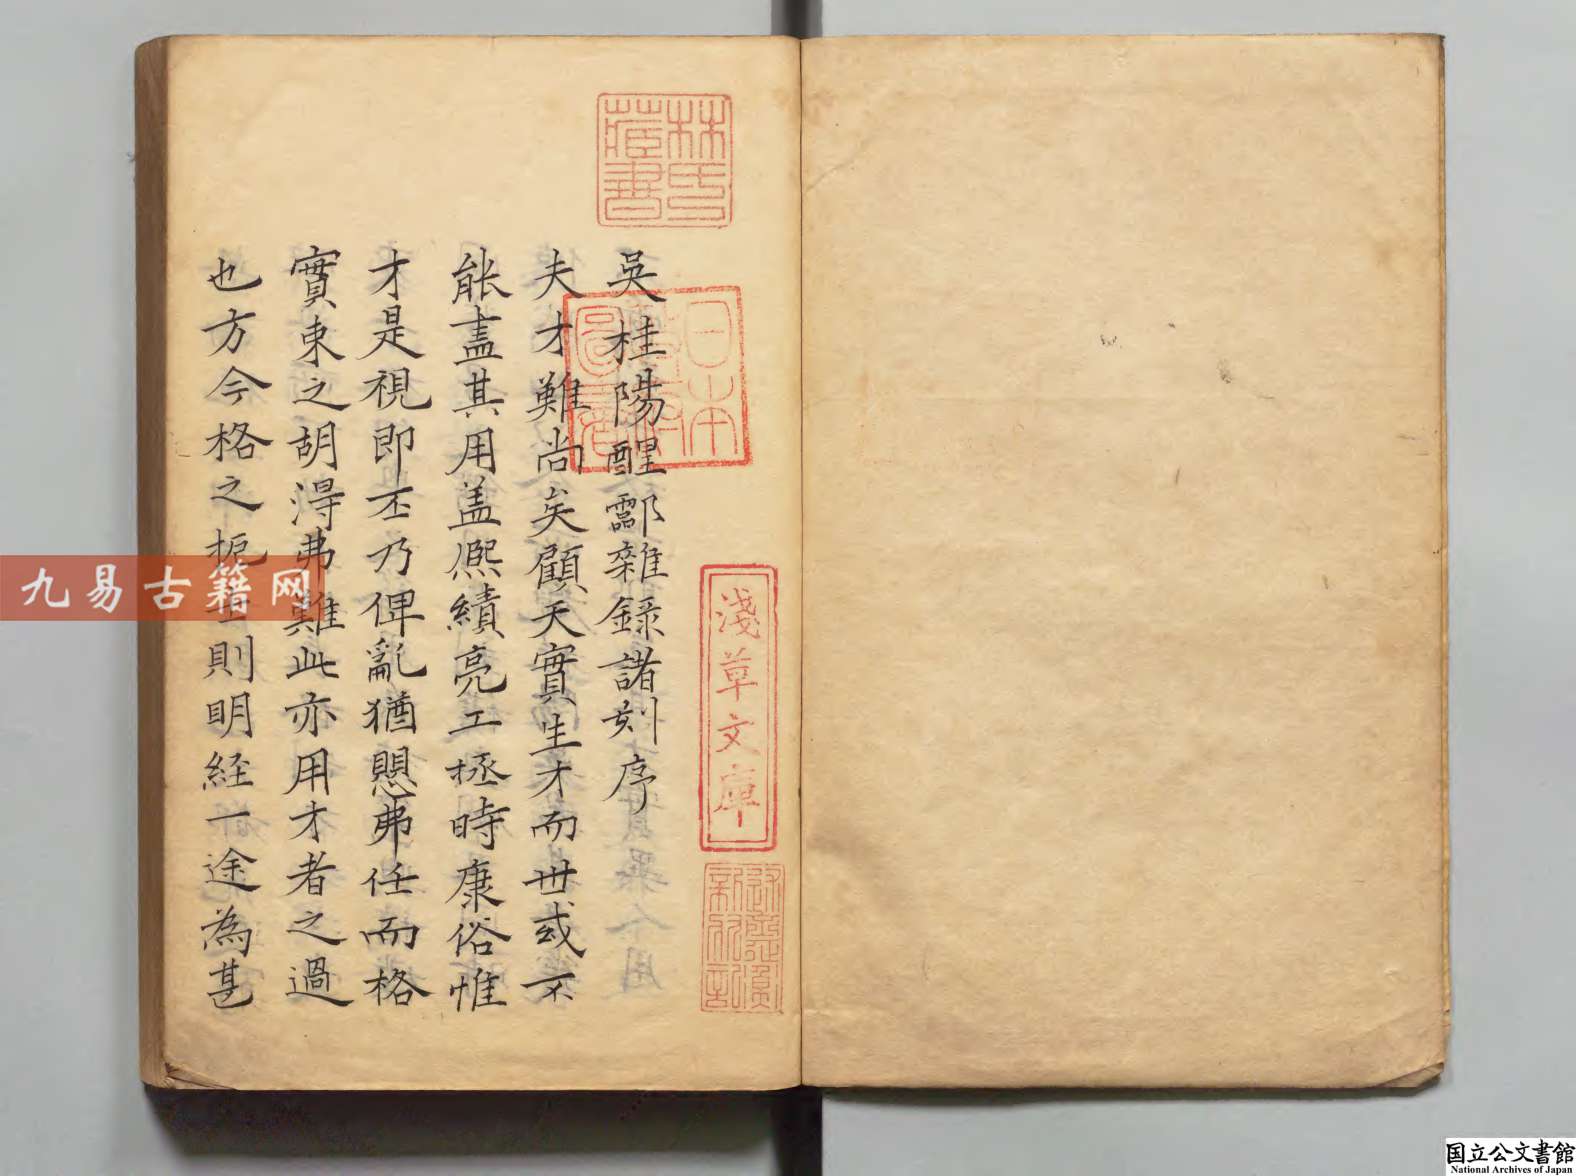 吳桂陽醒酃雜錄諸刻序
夫才難尚矣顧天實生才而世或不
能盡其用盖熈績亮工拯時康俗惟
才是視即丕乃俾亂猶愳弗任而格
實東之胡淂弗難此亦用才者之過
也方今格之扼則明經一途為甚
林氏藏書
日本
淺草文庫
九易古籍网
国立公文書館
National Archives of Japan